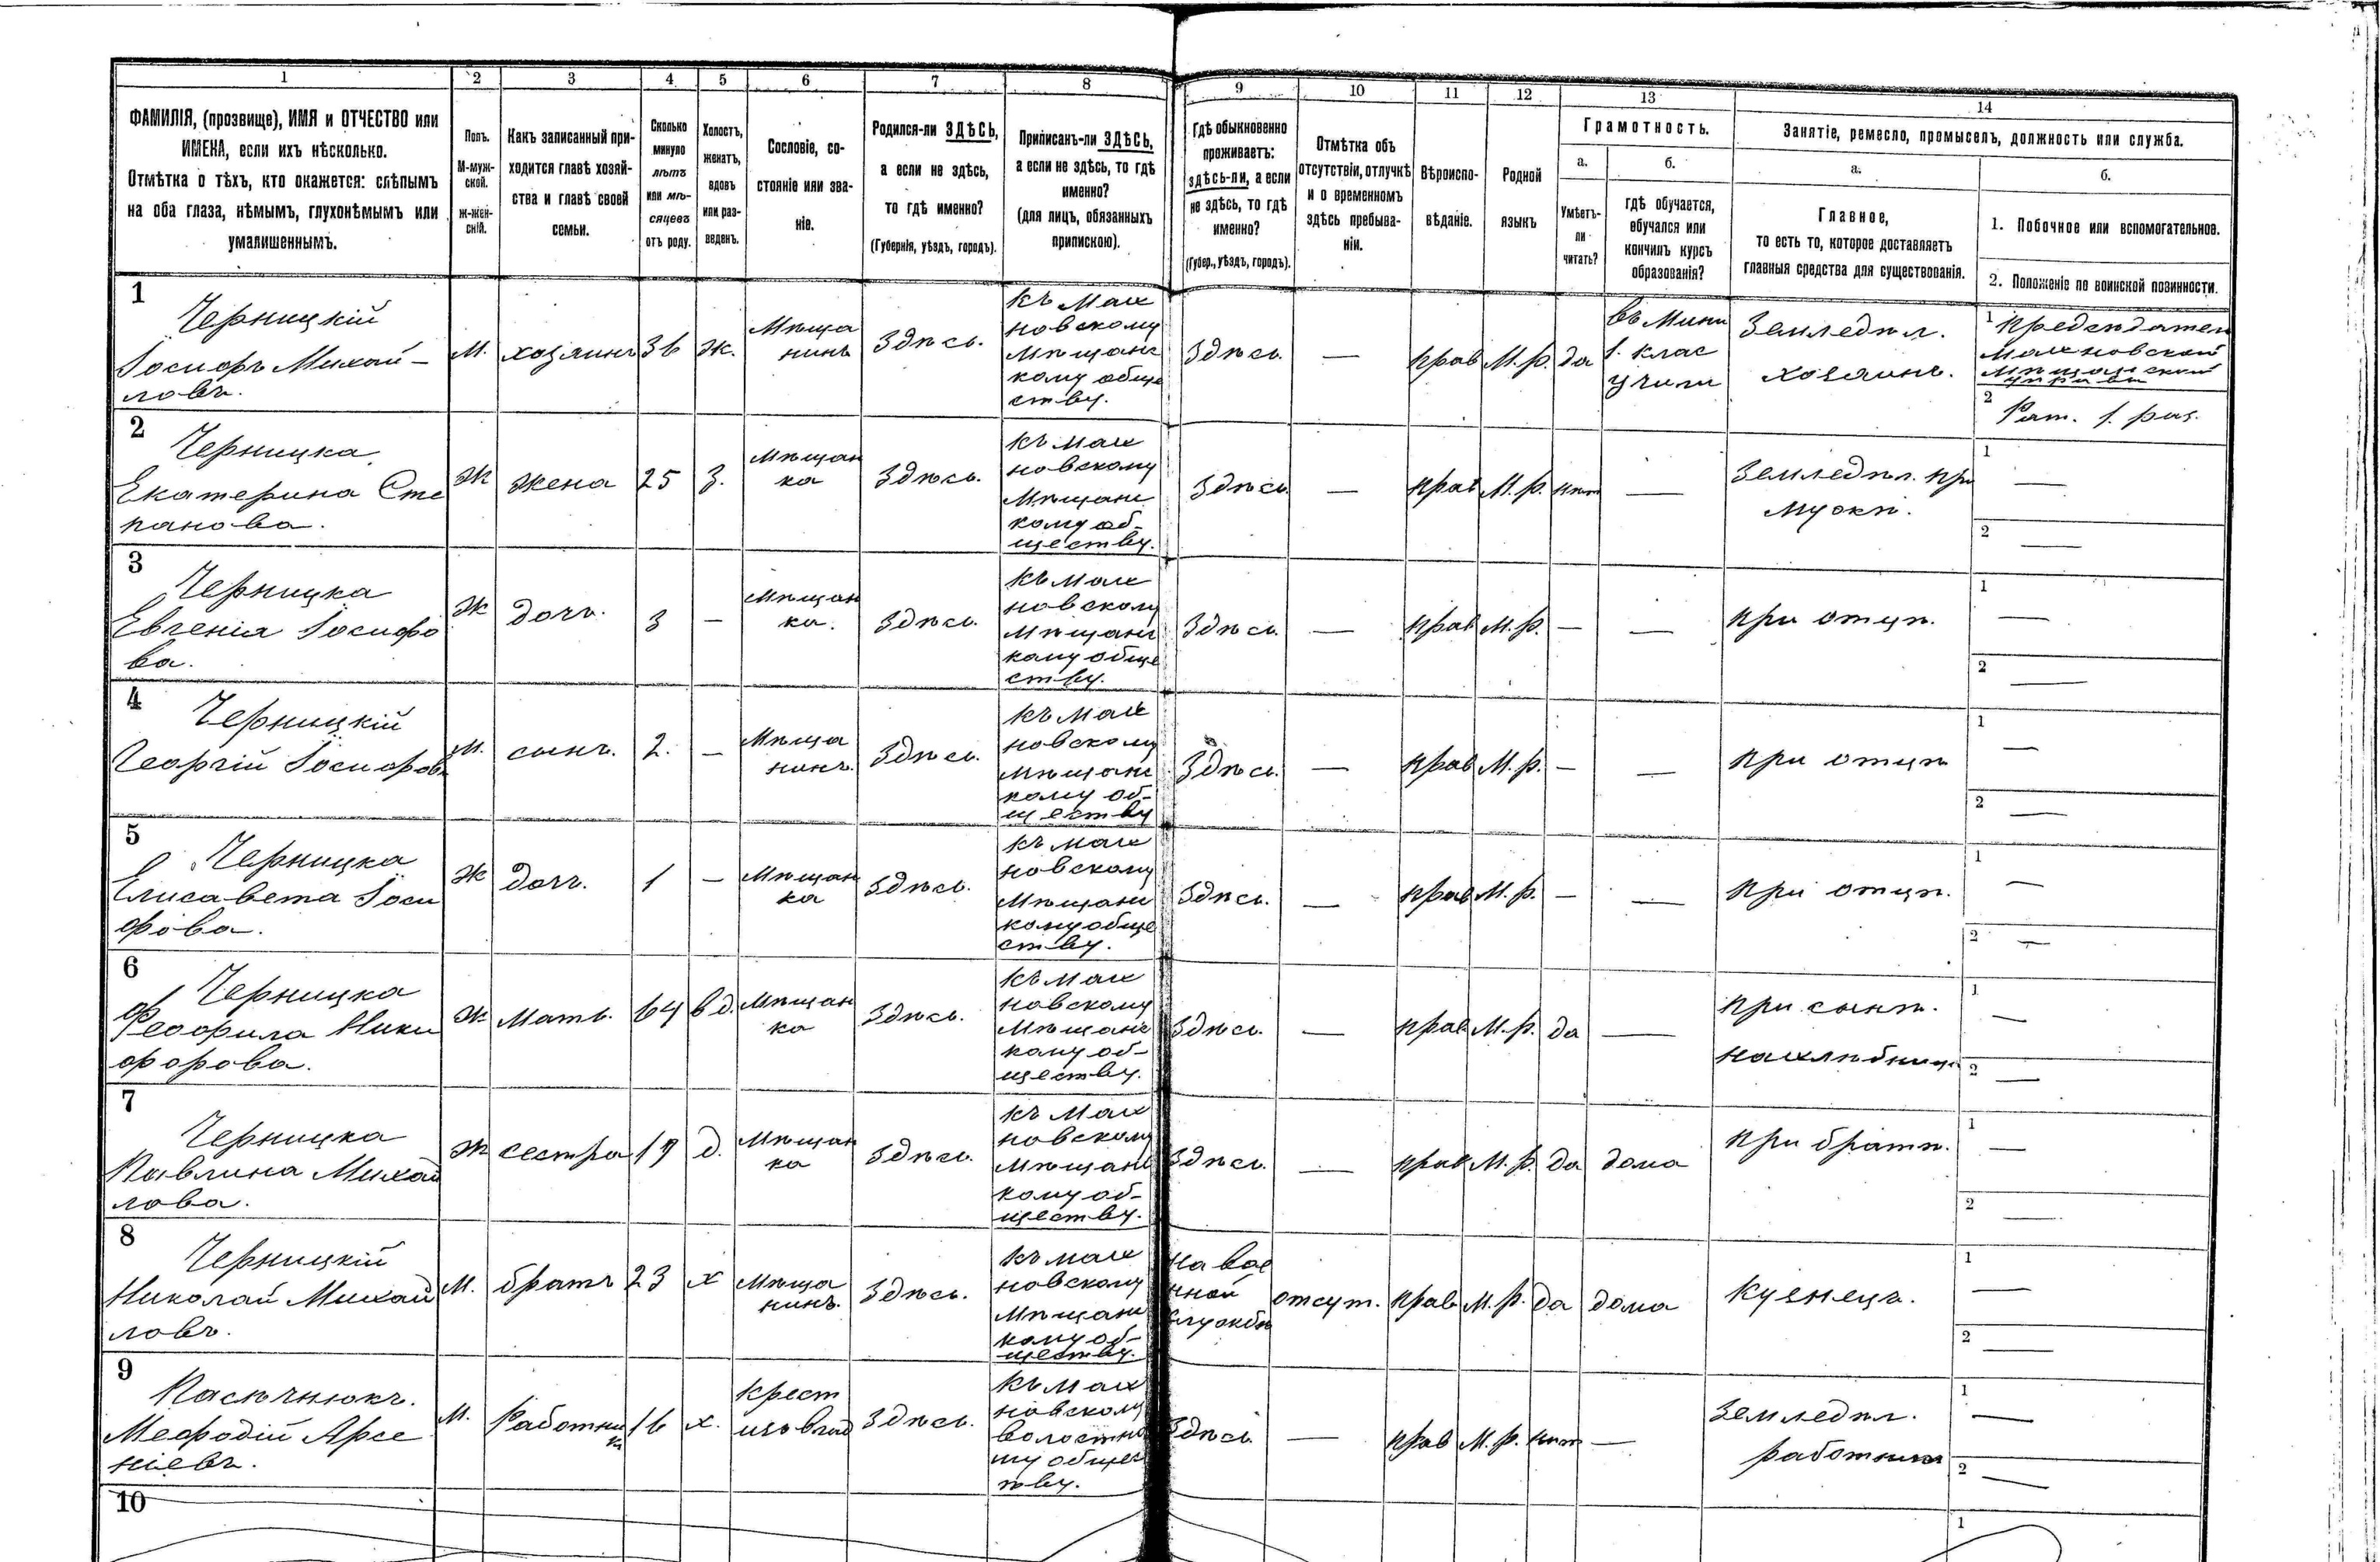 1 2 3 4 5 6 7 8 9 10 11 12 13 14
ФАМИЛІЯ, (прозвище), ИМЯ и ОТЧЕСТВО или
ИМЕНА, если ихъ нѣсколько.
Отмѣтка о тѣхъ, кто окажется: слѣпымъ
на оба глаза, нѣмымъ, глухонѣмымъ или
умалишеннымъ.
Полъ.
М-муж-
ской.
Ж-жен-
скій.
Какъ записанный при-
ходится главѣ хозяй-
ства и главѣ своей
семьи.
Сколько
минуло
лѣтъ
или мѣ-
сяцевъ
отъ роду.
Холостъ,
женатъ,
вдовъ
или раз-
веденъ.
Сословіе, со-
стояніе или зва-
ніе.
Родился-ли ЗДѢСЬ,
а если не здѣсь,
то гдѣ именно?
(Губернія, уѣздъ, городъ).
Приписанъ-ли ЗДѢСЬ,
а если не здѣсь, то гдѣ
именно?
(для лицъ, обязанныхъ
припискою).
Гдѣ обыкновенно
проживаетъ:
здѣсь-ли, а если
не здѣсь, то гдѣ
именно?
(Губер., уѣздъ, городъ).
Отмѣтка объ
отсутствіи, отлучкѣ
и о временномъ
здѣсь пребыва-
ніи.
Вѣроиспо-
вѣданіе.
Родной
языкъ
Грамотность.
а.
Умѣетъ-
ли
читать?
б.
гдѣ обучается,
обучался или
кончилъ курсъ
образованія?
Занятіе, ремесло, промыселъ, должность или служба.
а.
Главное,
то есть то, которое доставляетъ
главныя средства для существованія.
б.
1. Побочное или вспомогательное.
2. Положеніе по воинской повинности.
1
Черницкій
Іосифъ Михай-
ловъ.
М.
хозяинъ
36
ж.
Мѣща
нинъ
Здѣсь.
къ Мах
новскому
Мѣщанс
кому обще
ству.
Здѣсь.
—
прав
М.р.
да
въ Мини
1. клас
учили
Земледѣл.
хозяинъ.
1 предсѣдатель
Махновской
Мѣщанской
управы
2
Рат. 1. раз.
2
Черницка
Екатерина Сте
панова.
Ж
жена
25
з.
Мѣщан
ка
Здѣсь.
къ Мах
новскому
Мѣщанс
кому об-
ществу.
Здѣсь
—
прав
М.р.
нѣт
—
Земледѣл. при
мужѣ.
1 —
2 —
3
Черницка
Евгенія Іосифо
ва.
Ж
дочь.
3
—
Мѣщан
ка.
Здѣсь.
къ Мах
новскому
Мѣщанс
кому обще
ству.
Здѣсь.
—
прав
М.р.
—
—
при отцѣ.
1 —
2 —
4
Черницкій
Георгій Іосифовъ
М.
сынъ.
2.
—
Мѣща
нинъ.
Здѣсь.
къ Мах
новскому
Мѣщанс
кому об-
ществу
Здѣсь.
—
прав
М.р.
—
—
при отцѣ
1 —
2 —
5
Черницка
Елисавета Іоси
фова.
Ж
дочь.
1
—
Мѣщан
ка
Здѣсь.
къ Мах
новскому
Мѣщанс
кому обще
ству.
Здѣсь.
—
прав
М.р.
—
—
при отцѣ.
1 —
2 —
6
Черницка
Феофила Ники
форова.
Ж
Мать.
64
вд.
Мѣщан
ка
Здѣсь.
къ Мах
новскому
Мѣщанс
кому об-
ществу.
Здѣсь.
—
прав
М.р.
да
—
при сынѣ.
нахлѣбница
1 —
2 —
7
Черницка
Павлина Михай
лова.
Ж
сестра
19
д.
Мѣщан
ка
Здѣсь.
къ Мах
новскому
Мѣщанс
кому об-
ществу.
Здѣсь.
—
прав
М.р.
да
дома
при братѣ.
1 —
2 —
8
Черницкій
Николай Михай
ловъ.
М.
братъ
23
х
Мѣща
нинъ.
Здѣсь.
къ мах
новскому
Мѣщанс
кому об-
ществу.
на вое
нной
службѣ
отсут.
прав
М.р.
да
дома
кузнецъ.
1 —
2 —
9
Пасѣчнюкъ.
Мефодій Арсе
ніевъ.
М.
Работни
къ
16
х.
крест
изъ влад
Здѣсь.
къ Мах
новскому
волостно
му общес
тву.
Здѣсь
—
прав
М.р.
нѣт
—
земледѣл.
работник
1 —
2 —
10
1